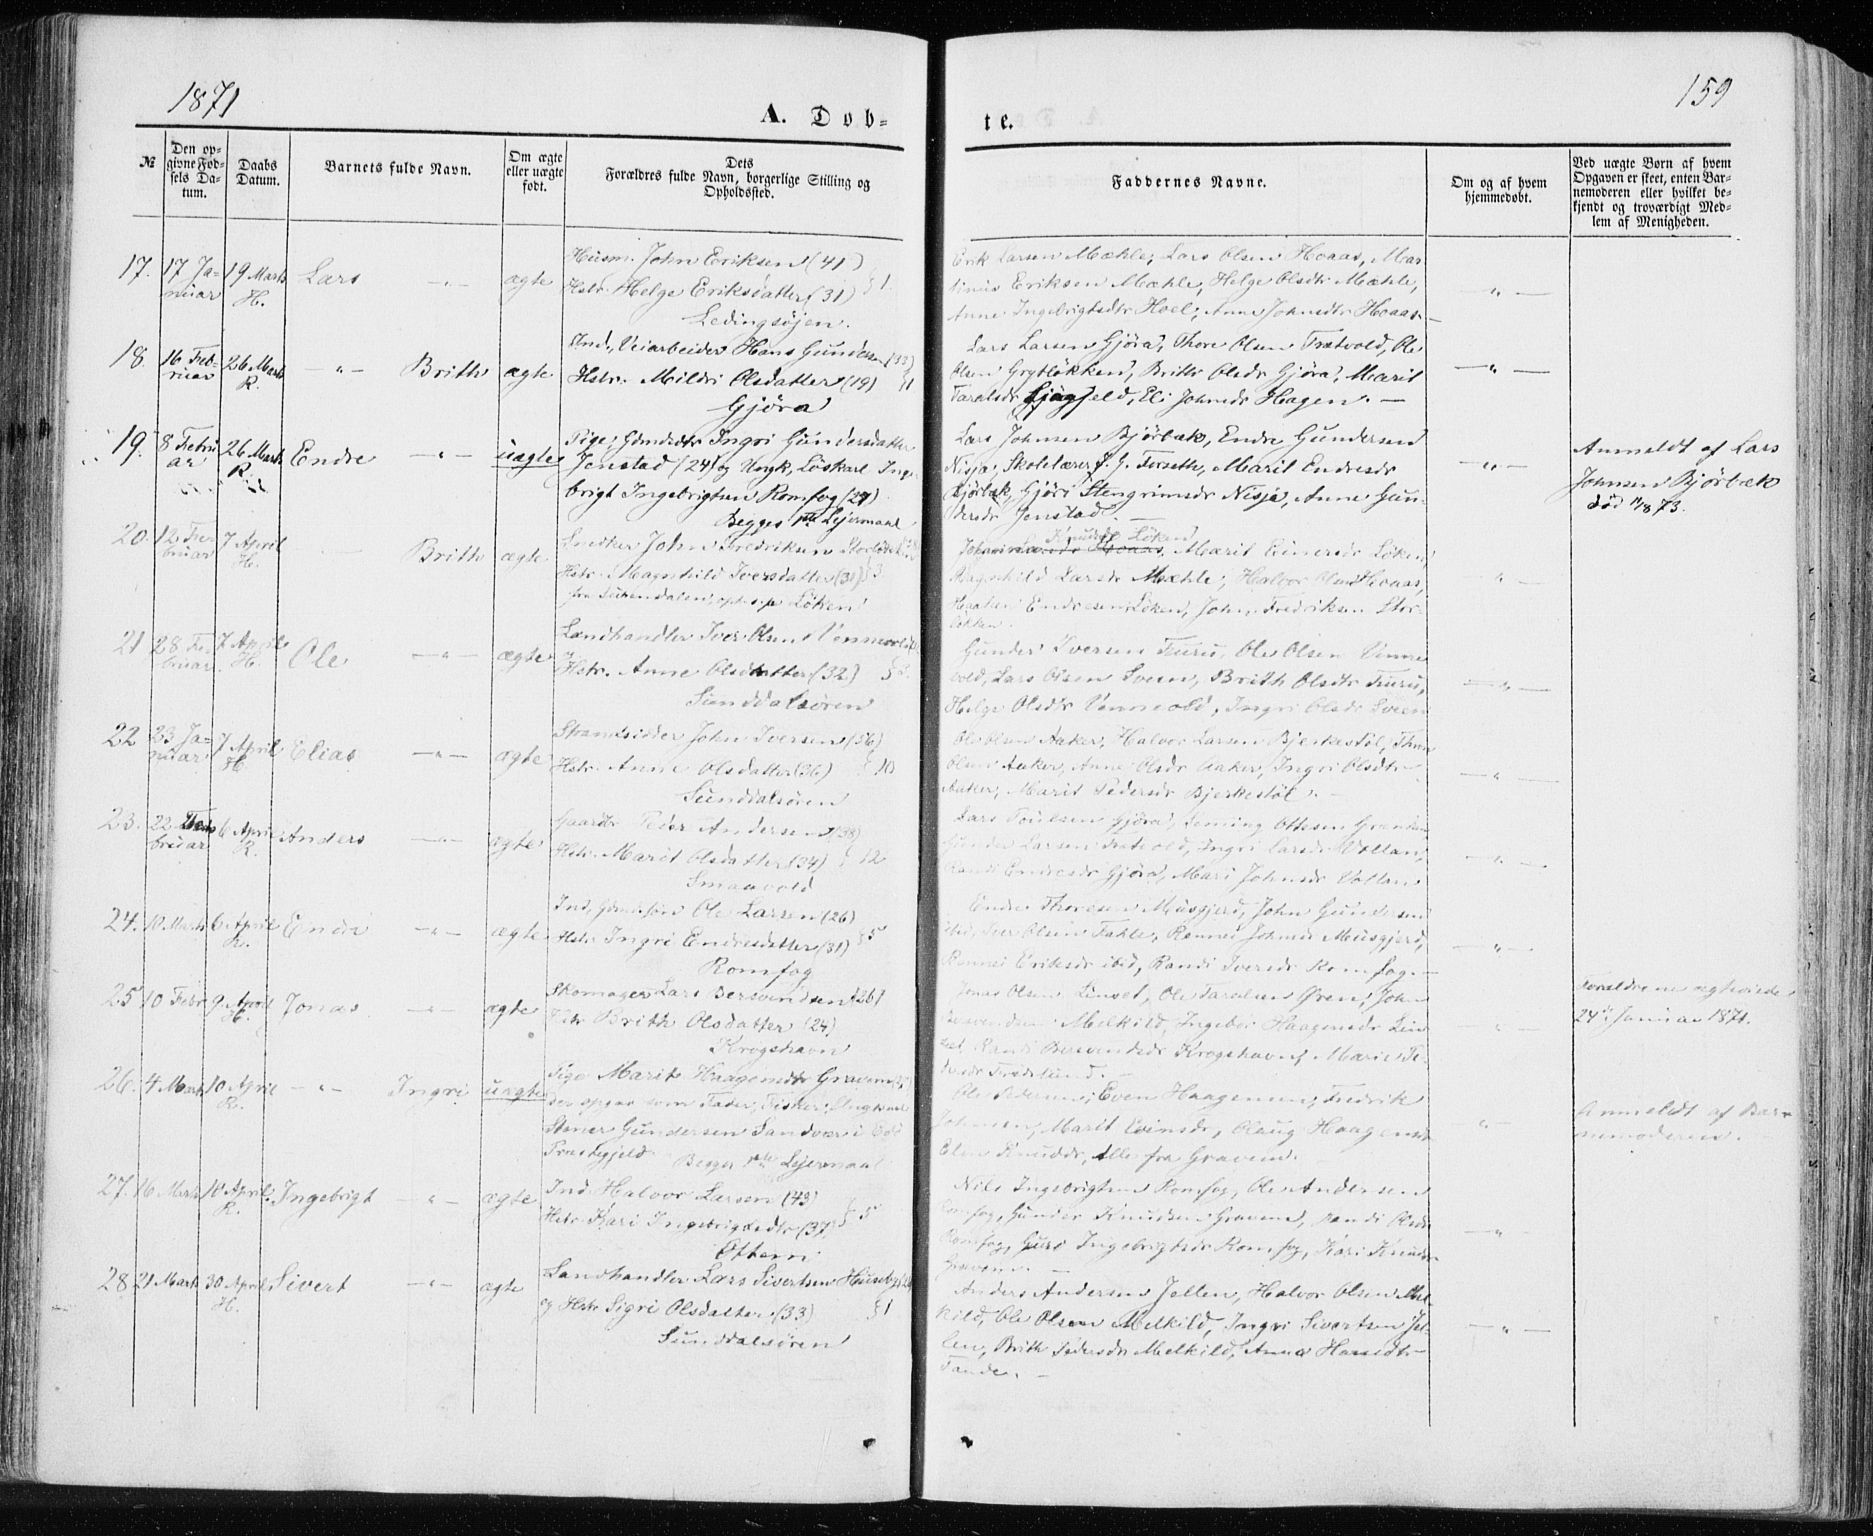 1871
159
A. Døb-
te.
№
Den op-
givne Fød-
sels Da-
tum.
Daabs
Datum.
Barnets fulde Navn.
Om ægte
eller uægte
født.
Dets
Forældres fulde Navn, borgerlige Stilling og
Opholdssted.
Faddernes Navne.
Om og af hvem
hjemmedøbt.
Ved uægte Børn af hvem
Opgaven er skeet, enten Bar-
nemoderen eller hvilket be-
kjendt og troværdigt Med-
lem af Menigheden.
17. 17 Ja- 19 Marts Lars -"- ægte
nuar H.
Husm. John Eriksen (41)
Hstr. Helge Eriksdatter (31) } 1.
Ledingsøjen.
Erik Larsen Mæhle, Lars Olsen Hoaas, Mar-
tinus Eriksen Mæhle, Helge Olsdtr Mæhle,
Anne Ingebrigtsdtr Hoel, Anne Johnsdtr Hoaas. -"-
18. 16 Feb- 26 Marts -"- Brith ægte
ruar R.
Ind., Veiarbeider Hans Gundersen (33)
Hstr. Mildri Olsdatter (19) } 1
Gjöra
Lars Larsen Gjöra, Thore Olsen Trætvold, Ole
Olsen Grytløkken, Brith Olsdr Gjöra, Marit
Taralsdr, Eli Johnsdr Hagen. — -"-
19. 8 Febru- 26 Marts Endre -"- uægte
ar R.
Pige, Gdmdtr Ingri Gundersdatter
Jenstad (24) og Ungk, Løskarl Inge-
brigt Ingebrigtsen Romfog (27)
Begges 1ste Lejermaal
Lars Johnsen Bjørbæk, Endre Gundersen
Nisja, Skolelærer J. G. Forseth, Marit Endresdr
Bjørbæk, Gjöri Stengrimsdr Nisja, Anne Gun-
dersdr Jenstad. — -"-
Anmeldt af Lars
Johnsen Bjørbæk
død 1873.
20. 12 Feb- 7 April Brith ægte
bruar H.
Snedker John Fredriksen Storløkken
Hstr. Magnhild Iversdatter (31) } 3
opholds. p. Løken
Knudsdr Løken
Hoaas, Marit Einersdr Løken,
Ragnhild Larsdr Mæhle, Halvor Olsen Hoaas,
Haaken Endresen Løken, John Fredriksen Stor-
løkken. -"-
21 28 Fe- 7 April Ole -"- ægte
bruar H.
Landhandler Iver Olsen Vennevold
Hstr. Anne Olsdatter (32)
Sunddalsören
Gunder Iversen Furu, Ole Olsen Venne-
vold, Lars Olsen Sveen, Brith Olsdtr Furu,
Helge Olsdtr Vennevold, Ingri Olsdr Sveen -"-
22 23 Ja- 7 April Elias -"- ægte
nuar H
Strandsidder John Iversen (56)
Hstr. Anne Olsdatter (36) } 10
Sunddalsören
Ole Olsen Aaker, Halvor Larsen Bjerkestøl, Thore
Olsen Aaker, Anne Olsdr Aaker, Ingri Olsdtr
Aaker, Marit Pedersdr Bjerkestøl. — -"-
23. 22 Feb- 6 April Anders -"- ægte
bruar R.
Gaardbr Peder Andersen (38)
Hstr. Marit Olsdatter (34) } 12
Smaavold
Lars Gjöra, Ottesen
Gunder Larsen Trætvold, Ingri Larsdr Vollan,
Randi Endresdr Gjöra, Mari Johnsdr Vollan -"-
24. 10 Marts 6 April Endre -"- ægte
R.
Ind, Gdmdsøn Ole Larsen (26)
Hstr. Ingri Endresdatter (31) } 5
Romfog
Endre Thoresen Musgjerd, John Gundersen
ibid, Iver Olsen Fahle, Rannei Johnsdr Musgjerd,
Rannei Eriksdr ibid, Randi Iversdr Romfog. — -"-
25 10 Febr 9 April Jonas -"- ægte
H.
Skomager Lars Bersvendsen (26)
Hstr Brith Olsdatter (24)
Krogshavn
Jonas Olsen Linset, Ole Taralsen Øren, John
Bersvendsen Melkild, Ingebor Haagensdr Lin-
set, Randi Bersvendsdr Krogshavn, Marie Pe-
dersdr "
Forældrene ægteviede
24de Januar 1871.
26. 4 Marts 10 April -"- Ingri uægte
R.
Pige Marit Haagensdtr Gravem
der opgav som Fader, Fisker, Ungkarl
Stener Gundersen Sandvær i
Præstegjeld. Begges 1ste Lejermaal
Ole Pedersen, Even Haagensen, Fredrik
Johnsen, Marit Evensdr, Olaug Haagensdr
Elen Knudsdr, Alle fra Gravem. -"-
Anmeldt af Bar-
nemoderen. —
27. 16 Marts 10 April Ingebrigt -"- ægte
R.
Ind Halvor Larsen (43)
Hstr Kari Ingebrigtsdtr (37) } 5
Ottem
Nils Ingebrigtsen Romfog, Ole Andersen
Romfog, Gunder Knudsen Gravem, Randi Olsdr
Romfog, Guri Ingebrigtsdr Romfog, Kari Knudsdr
Gravem. — -"-
28 21 Marts 30 April Sivert -"- ægte
H.
Landhandler Lars Sivertsen Huseby
og Hstr Sigri Olsdatter (33) } 1
Sunddalsören
Anders Andersen Jollen, Halvor Olsen Mel-
kild, Ole Olsen Melkild, Ingri Sivertsen Jol-
len, Brith Pedersdr Melkild, Anne Hansdtr
Tande. — -"-